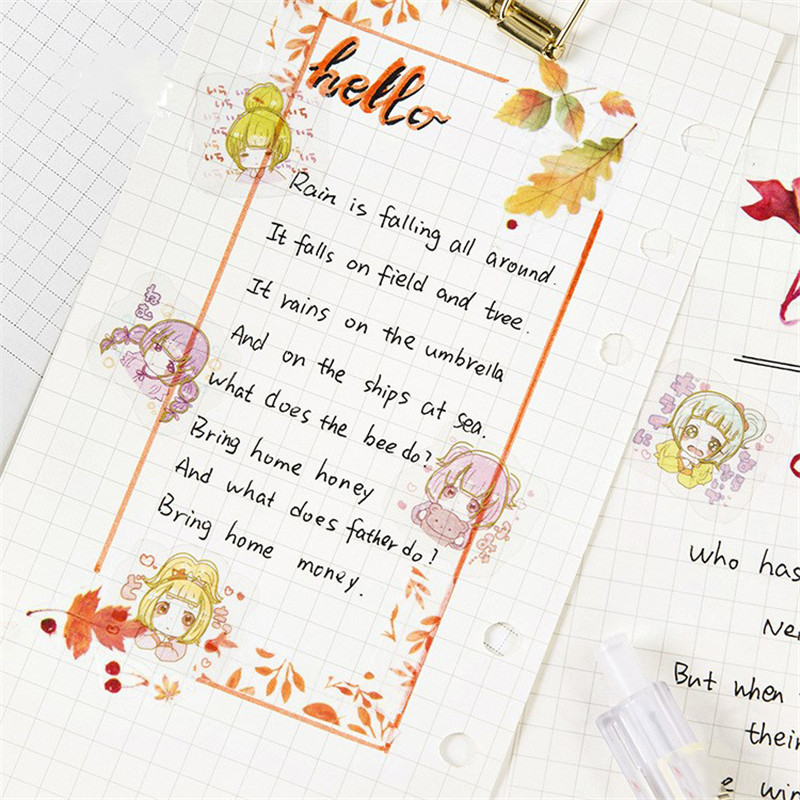 hello
Rain is falling all around.
It falls on field and tree.
It rains on the umbrella
And on the ships at sea.
what does the bee do?
Bring home honey
And what does father do?
Bring home money.
いら いら
いら いら
いら いら
ねむ
who has
But when
their